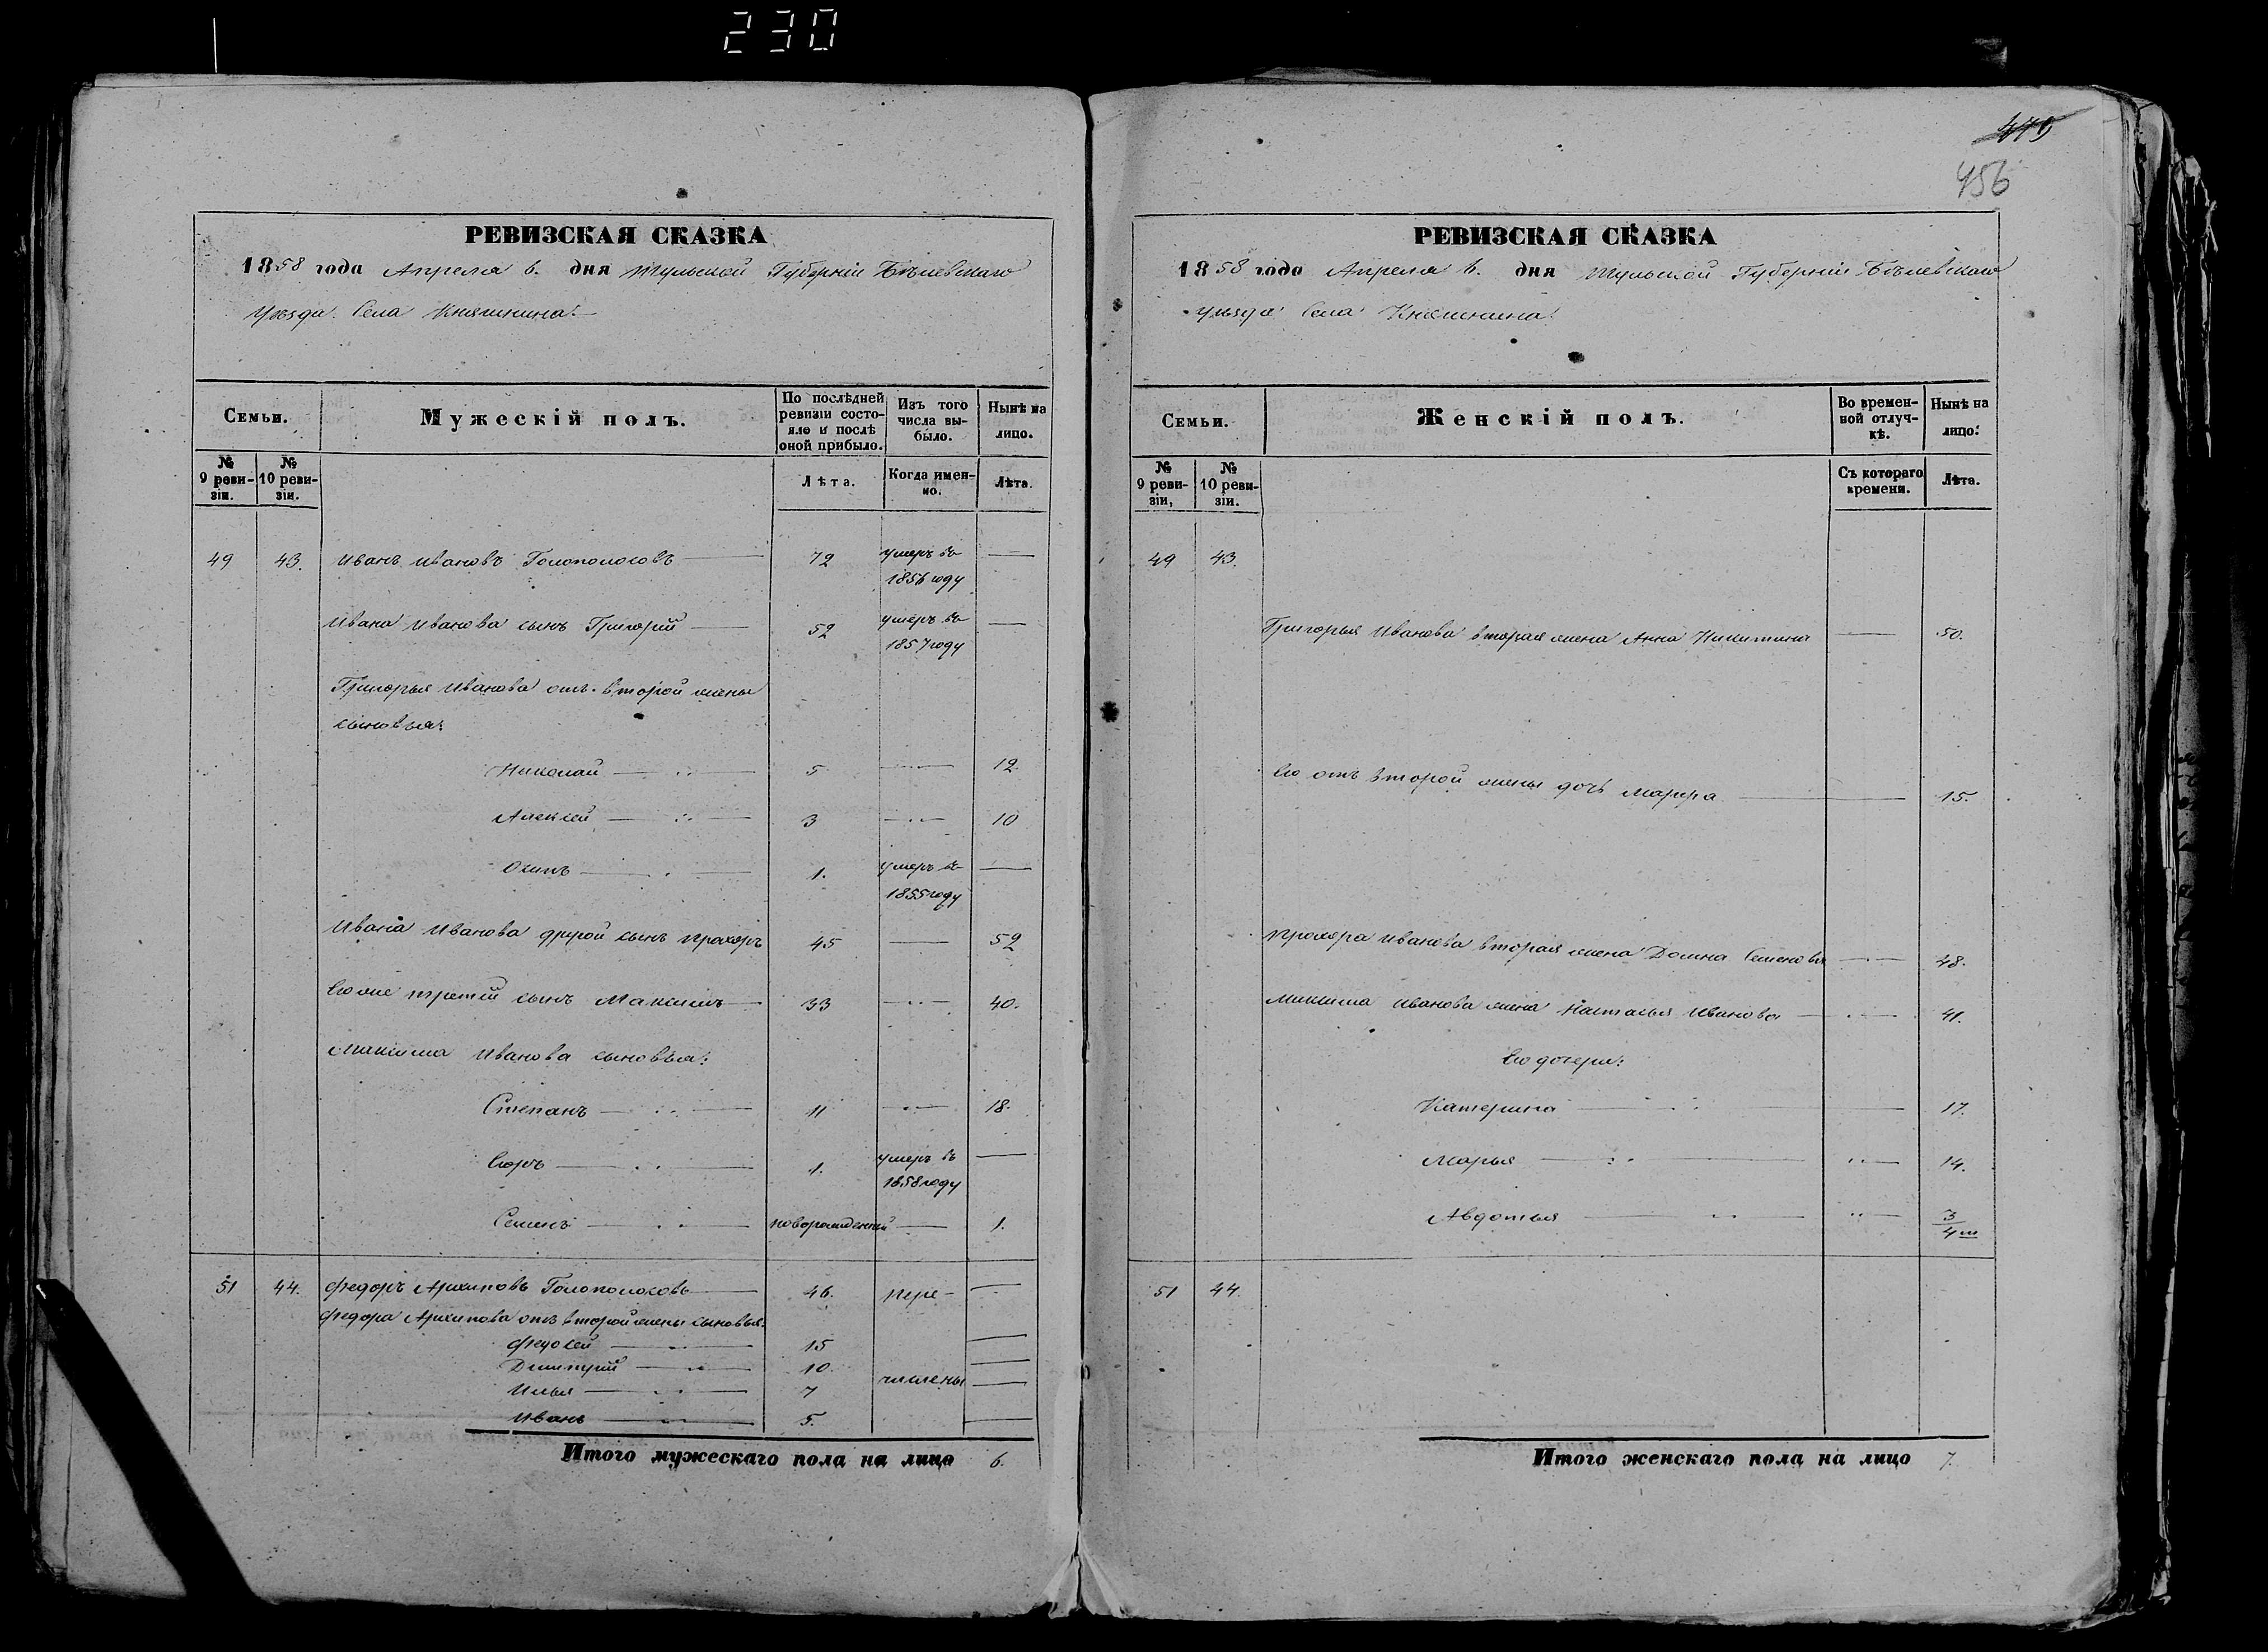 230
475
456
РЕВИЗСКАЯ СКАЗКА
1858 года Апреля 6. дня Тульской Губерніи Бѣлевскаго
Уѣзда. Села Княгинина.
Семьи.
Мужескій полъ.
По послѣдней ревизіи состояло и послѣ оной прибыло.
Изъ того числа выбыло.
Нынѣ на лицо.
№ 9 ревизіи.
№ 10 ревизіи.
Лѣта.
Когда именно.
Лѣта.
49 43. Иванъ Ивановъ Голополосовъ 72 умеръ въ 1856 году
Ивана Иванова сынъ Григорій 52 умеръ въ 1857 году
Григорья Иванова отъ второй жены
сыновья:
Николай 5 12.
Алексей 3 10
Осипъ 1. умеръ въ 1855 году
Ивана Иванова другой сынъ Прохоръ 45 52
Его же третій сынъ Максимъ 33 40.
Максима Иванова сыновья:
Степанъ 11 18.
Егоръ 1. умеръ въ 1858 году
Семенъ новорожденный 1.
51 44. Федоръ Архиповъ Голополосовъ 46. пере-
Федора Архипова отъ второй жены сыновья:
Федосей 15
Дмитрій 10.
числены
Илья 7
Иванъ 5.
Итого мужескаго пола на лицо 6.
РЕВИЗСКАЯ СКАЗКА
1858 года Апреля 6. дня Тульской Губерніи Бѣлевскаго
уѣзда Села Княгинина.
Семьи.
Женскій полъ.
Во временной отлучкѣ.
Нынѣ на лицо.
№ 9 ревизіи,
№ 10 ревизіи.
Съ котораго времени.
Лѣта.
49 43.
Григорья Иванова вторая жена Анна Никитина 50.
Его отъ второй жены дочь Марфа 15.
Прохора Иванова вторая жена Домна Семенова 48.
Максима Иванова жена Наталья Иванова 41.
Его дочери:
Катерина 17.
Марья 14.
Авдотья 3/4 м
51 44.
Итого женскаго пола на лицо 7.